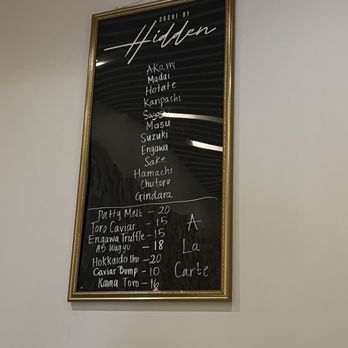 SUSHI BY
Hidden
Akami
Madai
Hotate
Kanpachi
Masu
Suzuki
Engawa
Sake
Hamachi
Chutoro
Gindara
Patty Melt - 20
Toro Caviar - 15
Engawa Truffle - 15
A5 Wagyu - 18
Hokkaido Uni - 20
Caviar Bump - 10
Kama Toro - 16
A
La
Carte